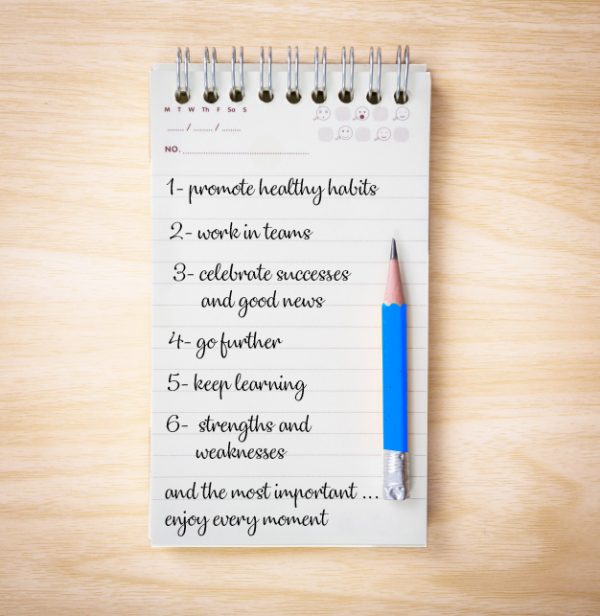 M T W Th F Sa S
....... / ........ / ........
NO. ..........................................
1- promote healthy habits
2- work in teams
3- celebrate successes
and good news
4- go further
5- keep learning
6- strengths and
weaknesses
and the most important ...
enjoy every moment